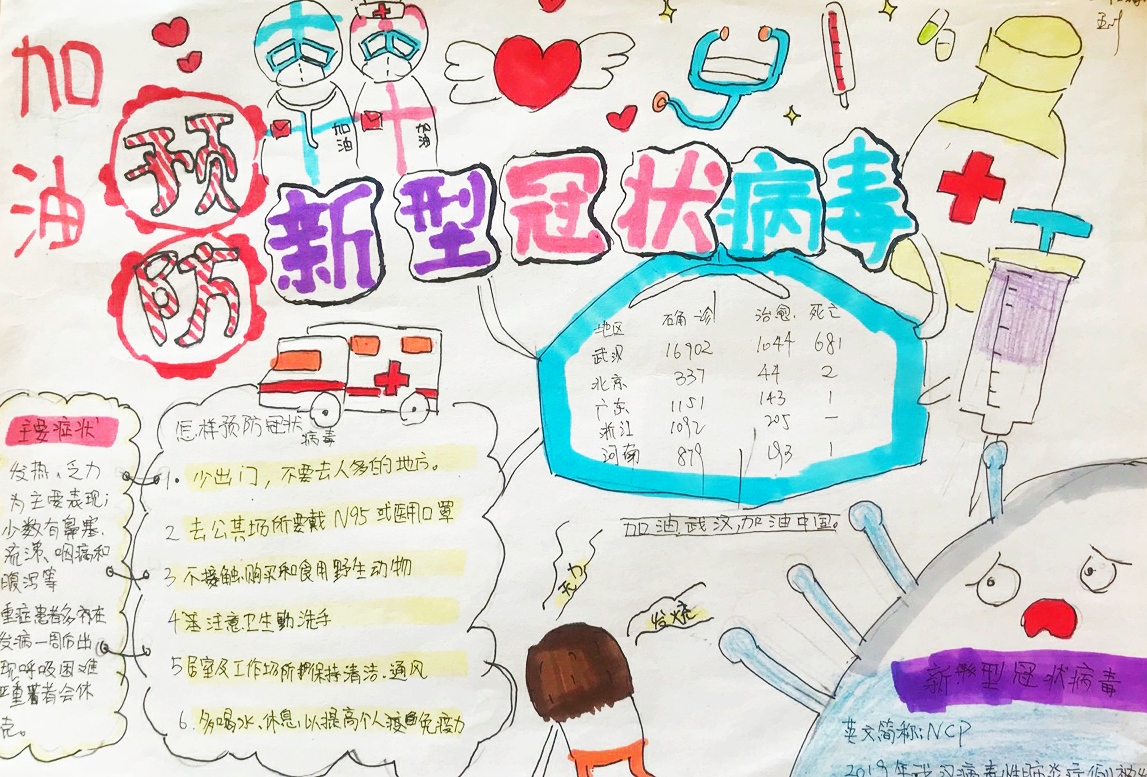 加油
预防
新型冠状病毒
加油
加油
地区 确诊 治愈 死亡
武汉 16902 1044 681
北京 337 44 2
广东 1151 143 1
浙江 1092 205 —
河南 879 193 1
加油武汉,加油中国。
主要症状
发热、乏力
为主要表现;
少数有鼻塞、
流涕、咽痛和
腹泻等
重症患者多在
发病一周后出
现呼吸困难
严重者会休
克。
怎样预防冠状
病毒
1. 少出门,不要去人多的地方。
2 去公共场所要戴N95或医用口罩
3 不接触、购买和食用野生动物
4 注意卫生勤洗手
5 居室及工作场所保持清洁、通风
6. 多喝水、休息,以提高个人免疫力
无力
发烧
新型冠状病毒
英文简称:NCP
2019年武汉病毒性肺炎病例